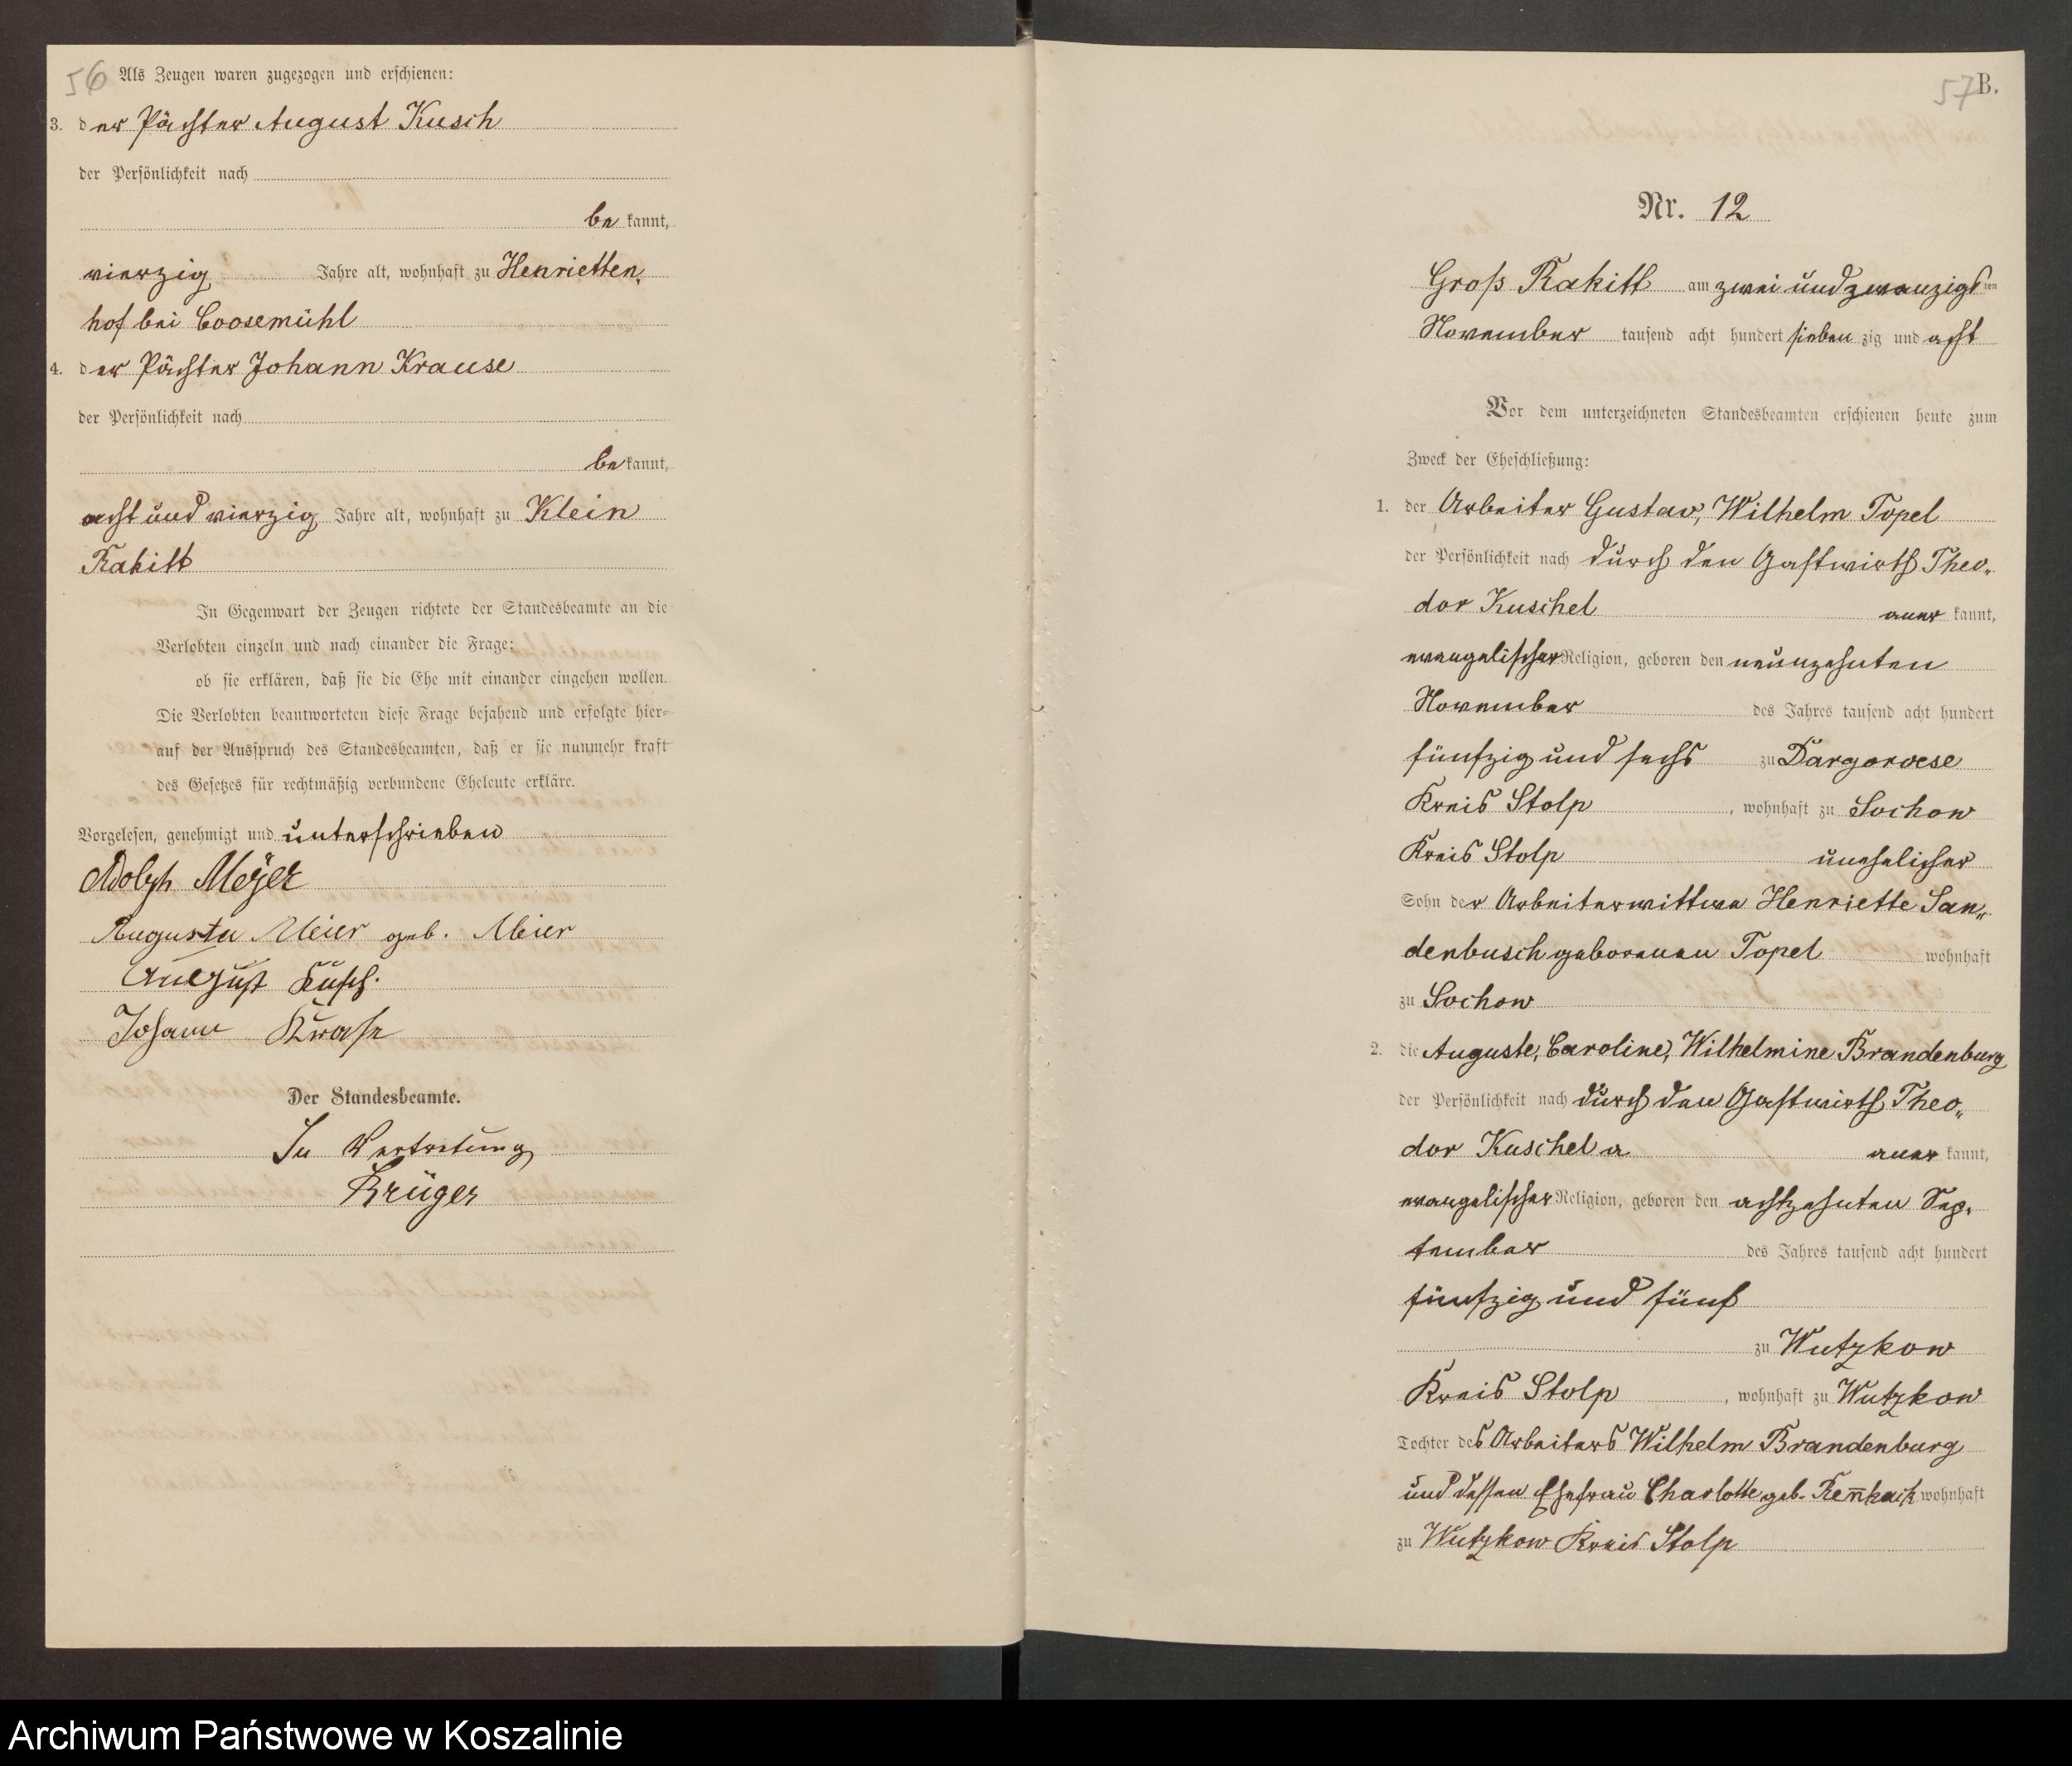 56
Als Zeugen waren zugezogen und erschienen:
3. der Pächter August Kusch
der Persönlichkeit nach
be kannt,
vierzig Jahre alt, wohnhaft zu Henrietten,
hof bei Coosemühl
4. der Pächter Johann Krause
der Persönlichkeit nach
be kannt,
acht und vierzig Jahre alt, wohnhaft zu Klein
Rakitt
In Gegenwart der Zeugen richtete der Standesbeamte an die
Verlobten einzeln und nach einander die Frage:
ob sie erklären, daß sie die Ehe mit einander eingehen wollen.
Die Verlobten beantworteten diese Frage bejahend und erfolgte hier-
auf der Ausspruch des Standesbeamten, daß er sie nunmehr kraft
des Gesetzes für rechtmäßig verbundene Eheleute erkläre.
Vorgelesen, genehmigt und unterschrieben
Adolph Meÿer
Auguste Meier geb. Meier
August Kusch.
Johann Krase
Der Standesbeamte.
In Vertretung
Krüger
57 B.
Nr. 12
Groß Rakitt am zwei und zwanzigsten
November tausend acht hundert sieben zig und acht
Vor dem unterzeichneten Standesbeamten erschienen heute zum
Zweck der Eheschließung:
1. der Arbeiter Gustav, Wilhelm Topel
der Persönlichkeit nach durch den Gastwirth Theo„
dor Kuschel aner kannt,
evangelischer Religion, geboren den neunzehnten
November des Jahres tausend acht hundert
fünfzig und sechs zu Dargoroese
Kreis Stolp, wohnhaft zu Sochow
Kreis Stolp unehelicher
Sohn der Arbeiterwittwe Henriette San„
denbusch geborenen Topel wohnhaft
zu Sochow
2. die Auguste, Caroline, Wilhelmine Brandenburg
der Persönlichkeit nach durch den Gastwirth Theo„
dor Kuschel a aner kannt,
evangelischer Religion, geboren den achtzehnten Sep,
tember des Jahres tausend acht hundert
fünfzig und fünf
zu Wutzkow
Kreis Stolp, wohnhaft zu Wutzkow
Tochter des Arbeiters Wilhelm Brandenburg
und dessen Ehefrau Charlotte geb. wohnhaft
zu Wutzkow Kreis Stolp
Archiwum Państwowe w Koszalinie